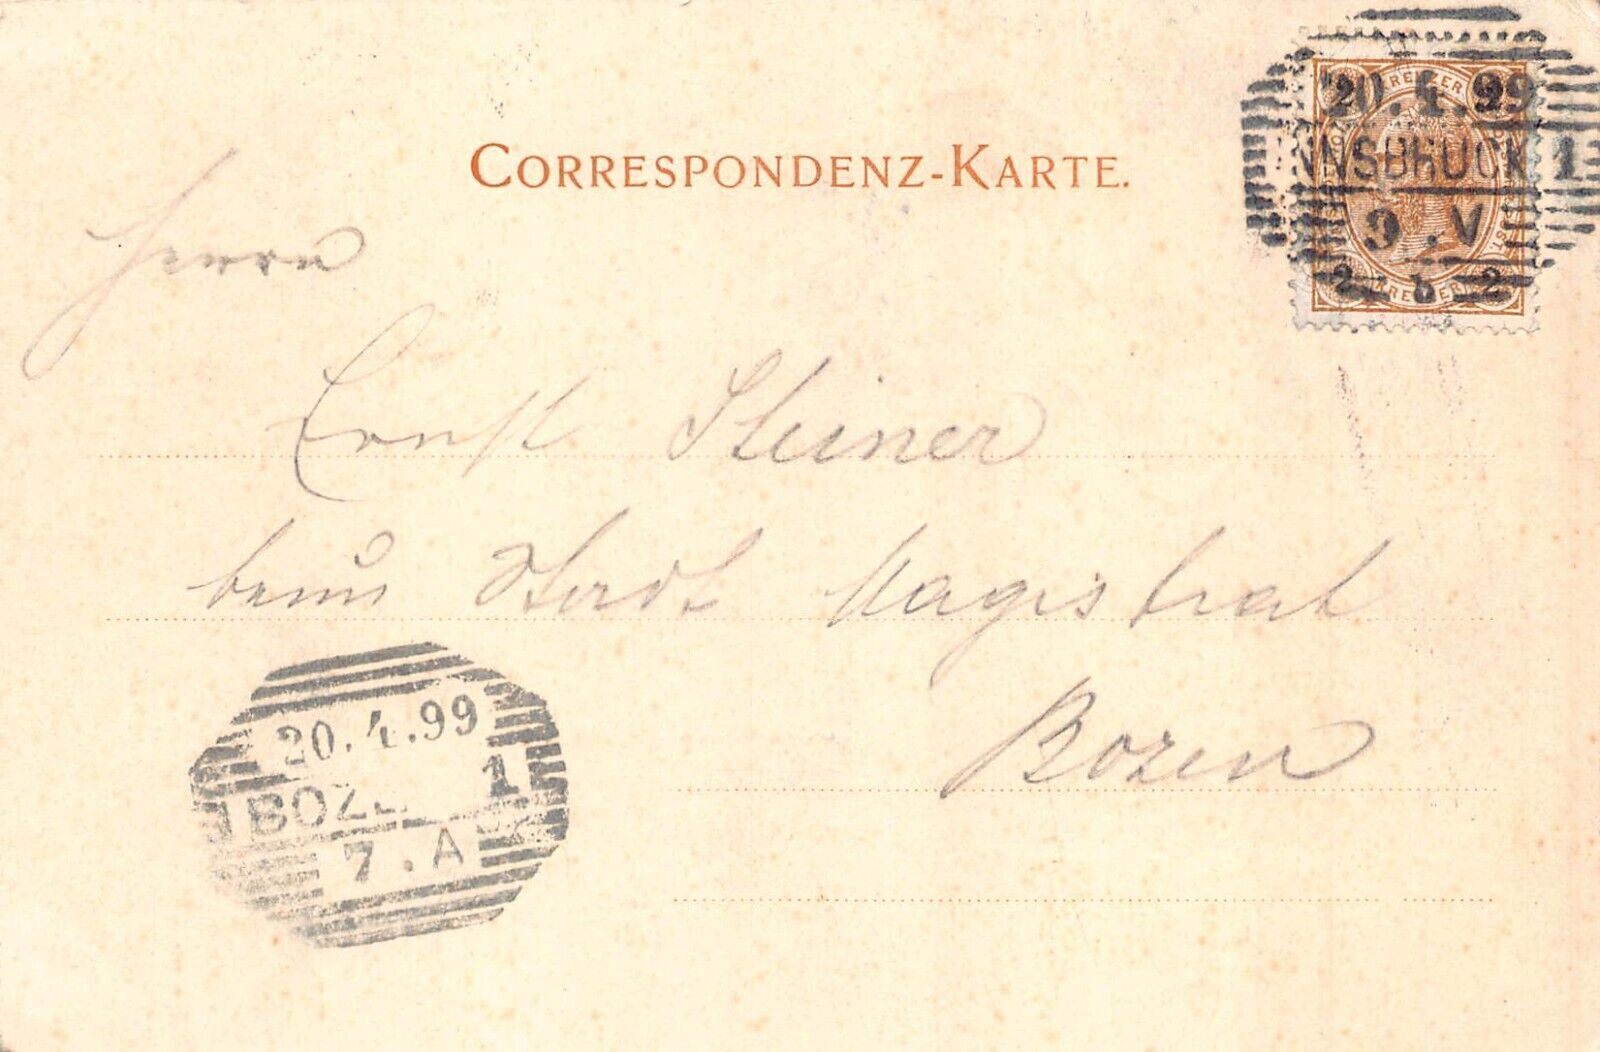 CORRESPONDENZ-KARTE.
20.4.99
INNSBRUCK 1
9.V
2 2
KREUZER
2 2
Herrn
Ernst Steiner
beim Stadt Magistrat
Bozen
20.4.99
BOZEN 1
7.A